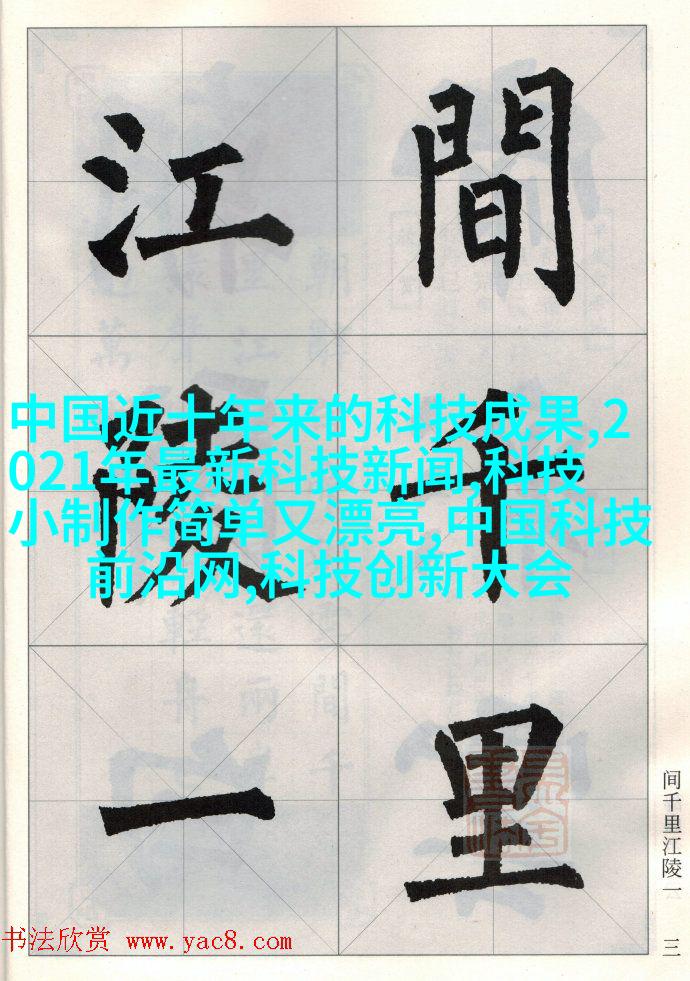 間千里
江陵一
中国近十年来的科技成果,2
021年最新科技新闻,科技
小制作简单又漂亮,中国科技
前沿网,科技创新大会
间千里江陵一
三
书法欣赏 www.yac8.com